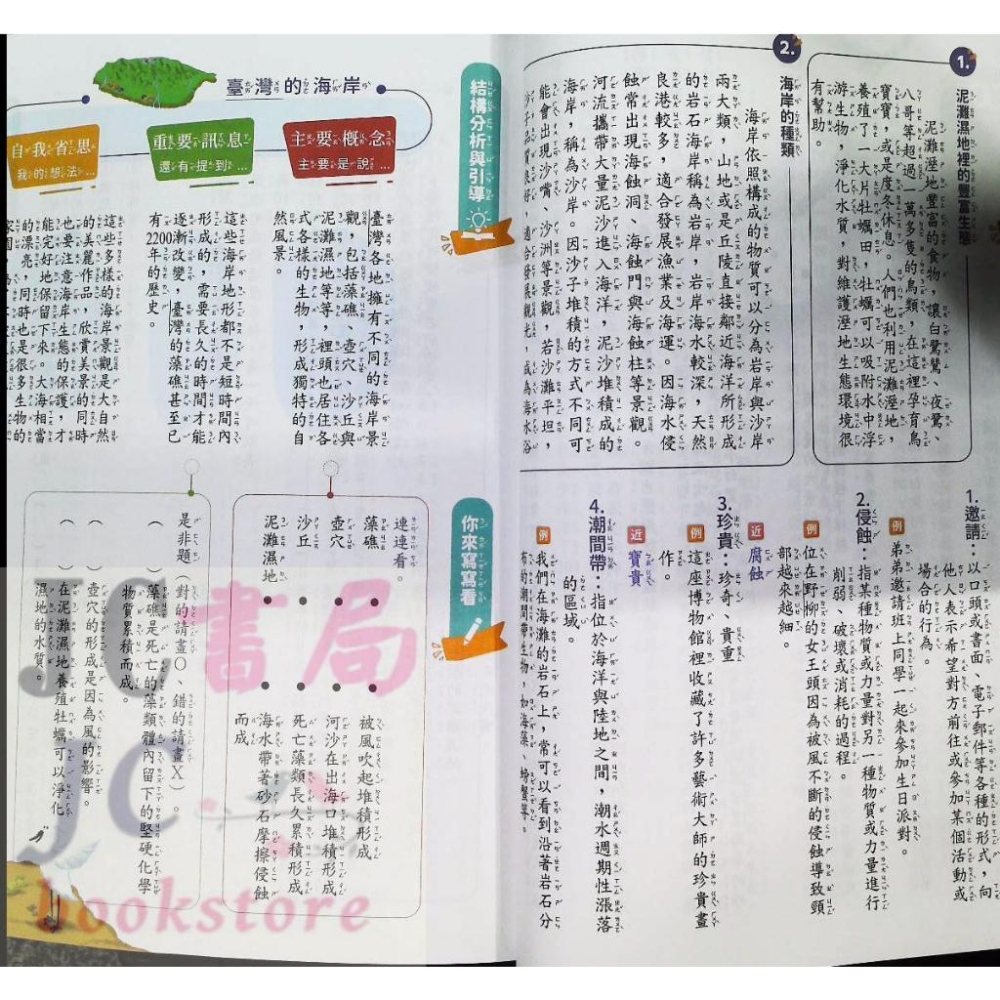 1.
泥灘濕地裡的豐富生態
泥灘溼地豐富的食物，讓白鷺鷥、夜鷺、
八哥等超過一萬多隻的鳥類，在這裡孕育鳥
寶寶，或是度冬休息。人們也利用泥灘溼地，
養殖了一大片牡蠣田，牡蠣可以吸附水中浮
游生物，淨化水質，對維護溼地生態環境很
有幫助。
2.
海岸的種類
海岸依照構成的物質可以分為岩岸與沙岸
兩大類，山地或是丘陵直接鄰近海洋所形成
的岩石海岸稱為岩岸，岩岸海水較深，天然
良港較多，適合發展漁業及海運。因海水侵
蝕常出現海蝕洞、海蝕門與海蝕柱等景觀。
河流攜帶大量泥沙進入海洋，泥沙堆積成的
海岸，稱為沙岸。因沙子堆積的方式不同可
能會出現沙嘴、沙洲等景觀，若沙灘平坦，
沙子品質良好，適合發展觀光，成為海水浴
1.邀請：以口頭或書面、電子郵件等各種的形式，向
他人表示希望對方前往或參加某個活動或
場合的行為。
例 弟弟邀請班上同學一起來參加生日派對。
2.侵蝕：指某種物質或力量對另一種物質或力量進行
削弱、破壞或消耗的過程。
例 位在野柳的女王頭因為被風不斷的侵蝕導致頸
部越來越細。
近 腐蝕
3.珍貴：珍奇、貴重
例 這座博物館裡收藏了許多藝術大師的珍貴畫
作。
近 寶貴
4.潮間帶：指位於海洋與陸地之間，潮水週期性漲落
的區域。
例 我們在海灘的岩石上，常可以看到沿著岩石分
布的潮間帶生物，如海藻、螃蟹等。
結構分析與引導
臺灣的海岸
主要概念
主要是說…
臺灣各地擁有不同的海岸景
觀，包括藻礁、壺穴、沙丘與
泥灘濕地等等，裡頭也居住各
式各樣的生物，形成獨特的自
然風景。
重要訊息
還有提到…
這些海岸地形都不是短時間內
形成的，需要長久的時間才能
逐漸改變，臺灣的藻礁甚至已
有2200年的歷史。
自我省思
我的想法…
這些多樣的海岸景觀是大自然
的美麗作品，欣賞美景的同時
也要注意海岸生態的保護，才
能完好地保留下來。大海相當
的漂亮，同時也是很多生物的
你來寫寫看
連連看。
藻礁
壺穴
沙丘
泥灘濕地
被風吹起堆積形成
河沙在出海口堆積形成
死亡藻類長久累積形成
海水帶著砂石摩擦侵蝕
而成
是非題（對的請畫O、錯的請畫X）。
（ ）藻礁是死亡的藻類體內留下的堅硬化學
物質累積而成。
（ ）壺穴的形成是因為風的影響。
（ ）在泥灘濕地養殖牡蠣可以淨化
濕地的水質。
JC書局
JC
bookstore